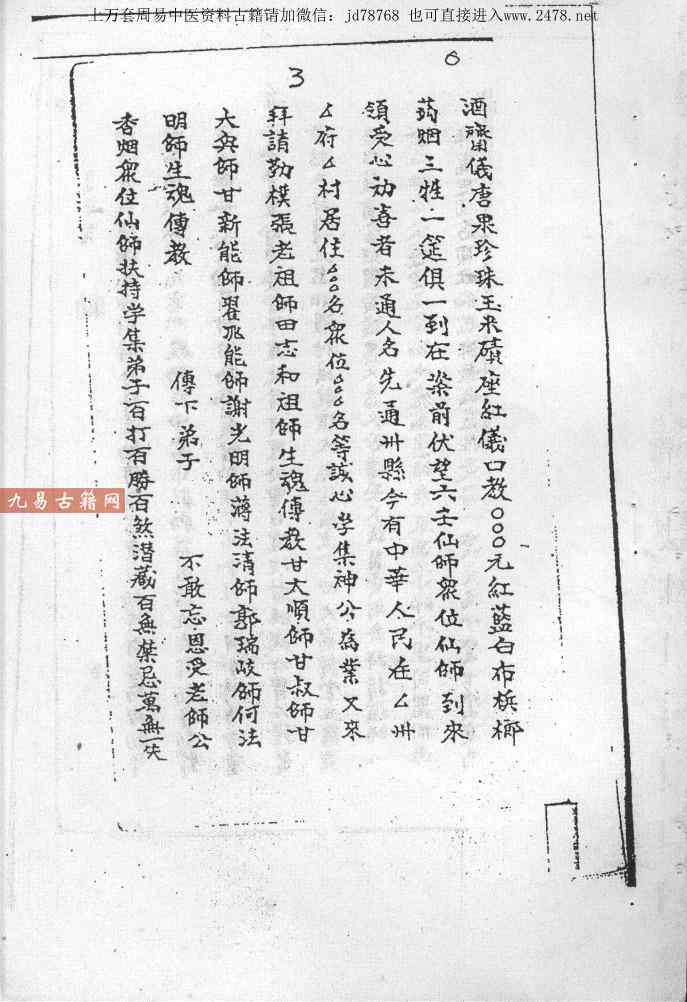 上万套周易中医资料古籍请加微信：jd78768 也可直接进入www.2478.net
6
3
酒齋儀唐果珍珠玉米磧座紅儀口教〇〇〇元紅藍白布梹榔
药烟三牲一筵俱一到在案前伏望六壬仙师众位仙师到來
領受心劝喜者未通人名先通州縣今有中華人民在厶州
厶府厶村居住厶〇〇名众位厶〇〇名等誠心学集神公為業又來
拜請勤樸張老祖师田志和祖师生魂傳教甘大順师甘叔师甘
大兴师甘新能师翟兆能师謝光明师蔣法清师郭瑞岐师何法
明师生魂傳教 傳下弟子 不敢忘恩受老师公
香烟众位仙师扶持学集弟子百打百勝百煞潜藏百無禁忌萬無一失
九易古籍网